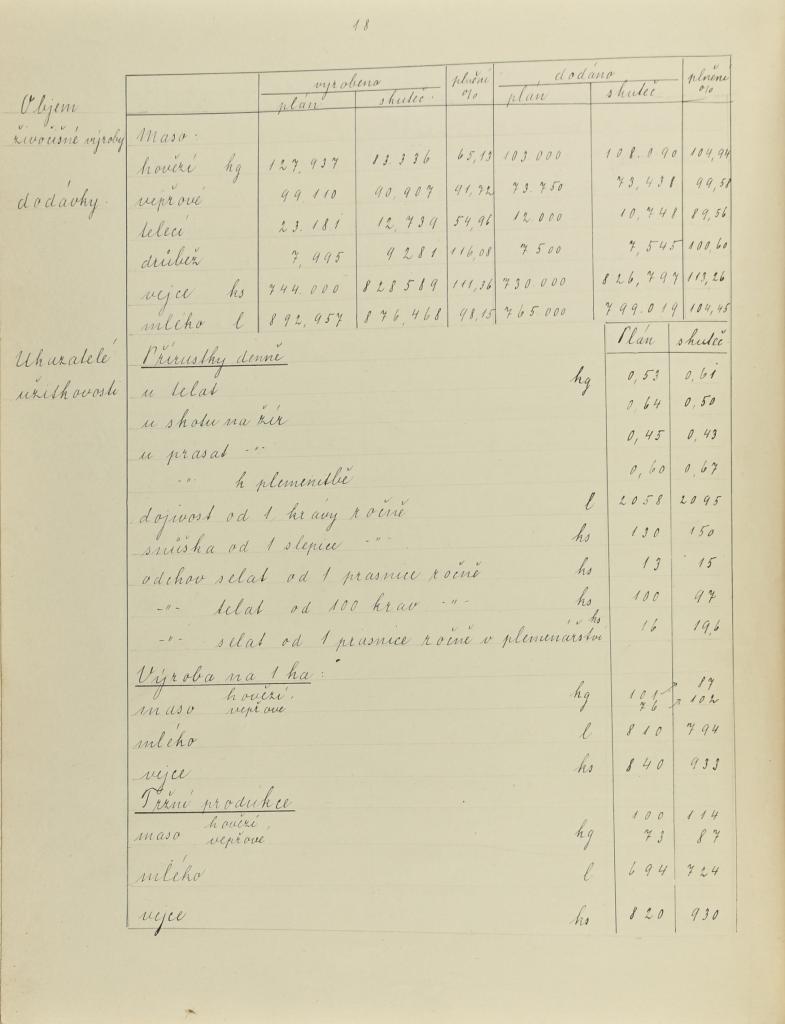 18
vyrobeno plnění % dodáno plnění %
plán skuteč. plán skuteč.
Objem
živočišné výroby Maso:
hovězí kg 127,937 83.336 65,13 103000 108.090 104,94
dodávky. vepřové 99.110 90,907 91,72 73.750 73,438 99,58
telecí 23.181 12,739 54,96 12.000 10,748 89,56
drůbež 7,995 9281 116,08 7500 7,545 100,60
vejce ks 744.000 828589 111,36 730.000 826,797 113,26
mlého l 892,957 876,468 98,15 765000 799.019 104,45
Plán skuteč.
Ukazatelé Přírustky denně
užitkovosti u telat kg 0,53 0,61
u skotu na žír 0,64 0,50
u prasat -"- 0,45 0,43
-"- k plemenitbě 0,60 0,67
dojivost od 1 krávy ročně l 2058 2095
snůška od 1 slepice -"- ks 130 150
odchov selat od 1 prasnice ročně ks 13 15
-"- telat od 100 krav -"- ks 100 97
-"- selat od 1 prasnice ročně v plemenářství ks 16 19,6
Výroba na 1 ha:
maso hovězí. kg 101 87
vepřové 76 102
mlého l 810 794
vejce ks 840 933
Tržní produkce
maso hovězí kg 100 114
vepřové 73 87
mlého l 694 724
vejce ks 820 930